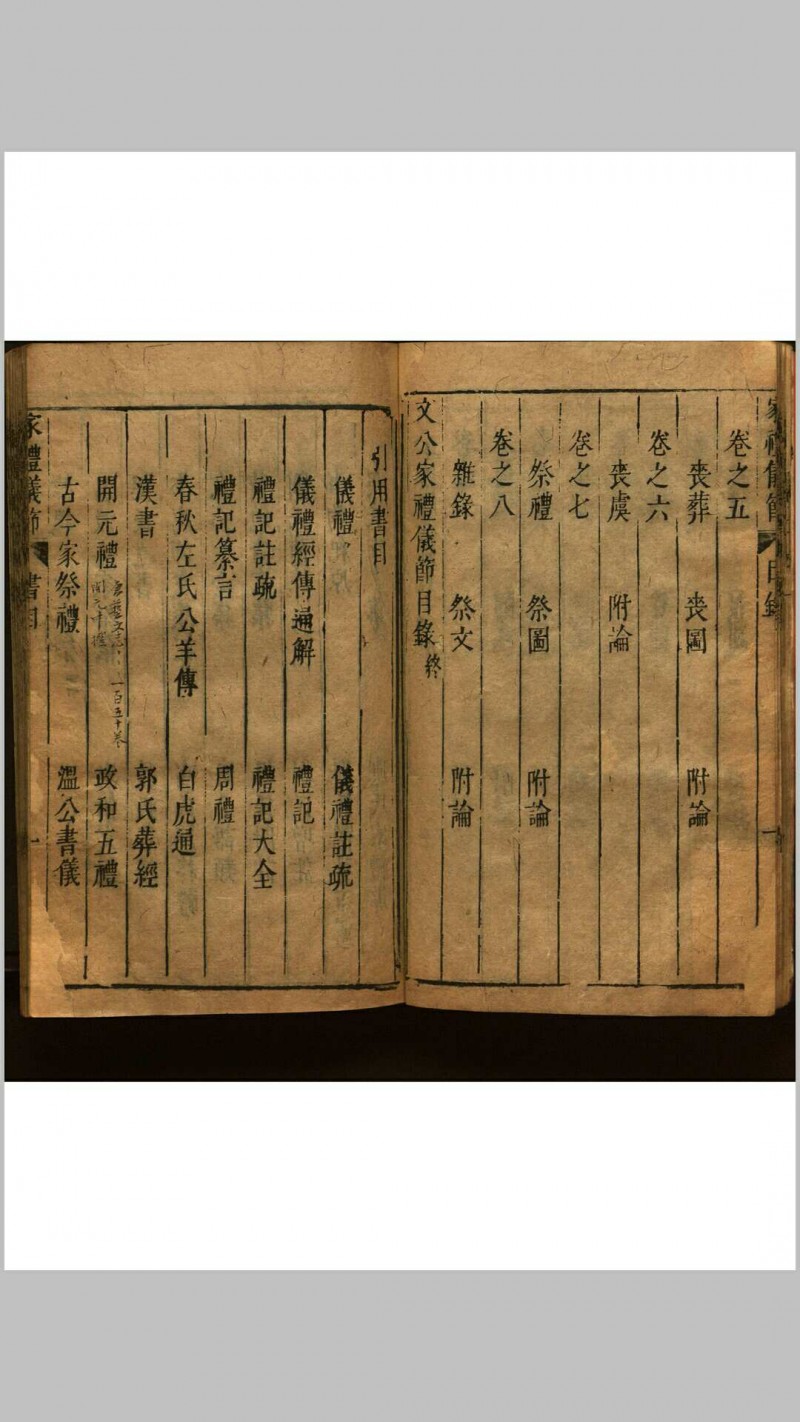 家禮儀節 目錄
卷之五
喪葬 喪圖 附論
卷之六
喪虞 附論
卷之七
祭禮 祭圖 附論
卷之八
雜錄 祭文 附論
文公家禮儀節目錄終
引用書目
儀禮 儀禮註疏
儀禮經傳通解 禮記
禮記註疏 禮記大全
禮記纂言 周禮
春秋左氏公羊傳 白虎通
漢書 郭氏葬經
開元禮 唐藝文志 開元禮 一百五十卷 政和五禮
古今家祭禮 溫公書儀
家禮儀節 書目 一